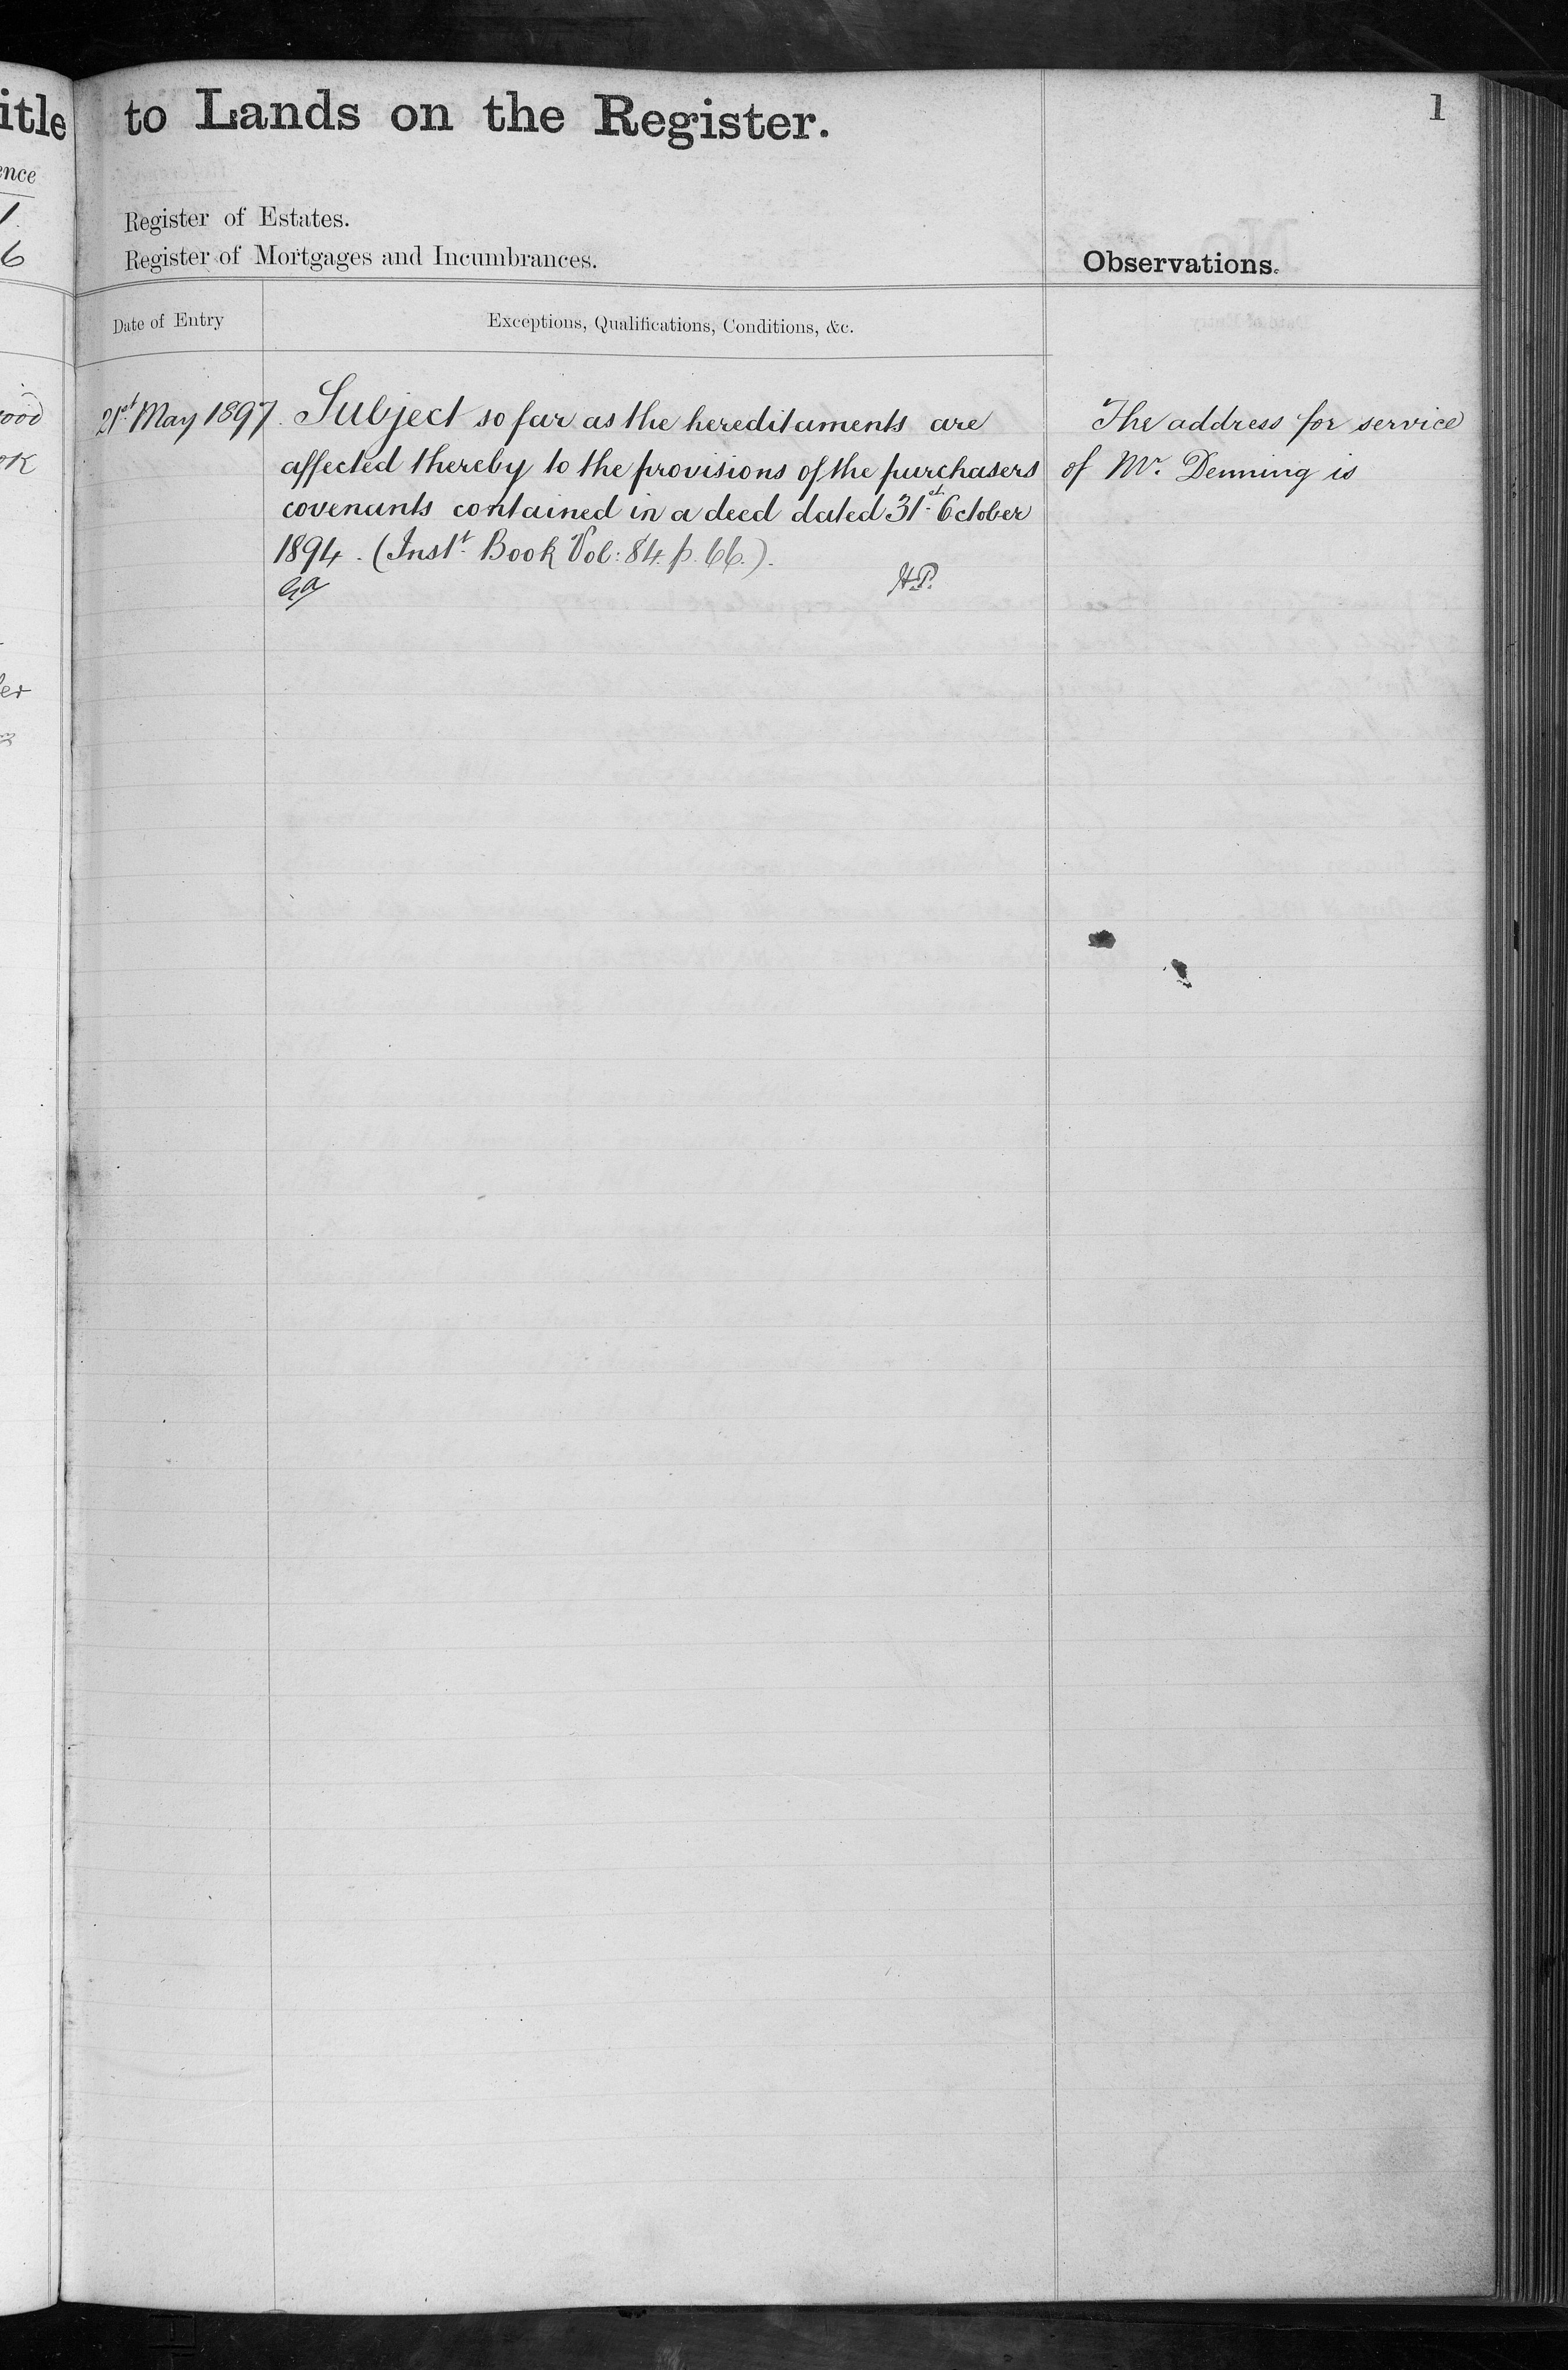 itle to Lands on the Register. 1
ence
1.
6
Register of Estates.
Register of Mortgages and Incumbrances.
Observations.
Date of Entry
Exceptions, Qualifications, Conditions, &c.
21st May 1897. Subject so far as the hereditaments are
affected thereby to the provisions of the purchasers
covenants contained in a deed dated 31st October
1894. (Instt. Book Vol: 84. p. 66.).
H.P.
The address for service
of Mr. Denning is
ood
ok
er